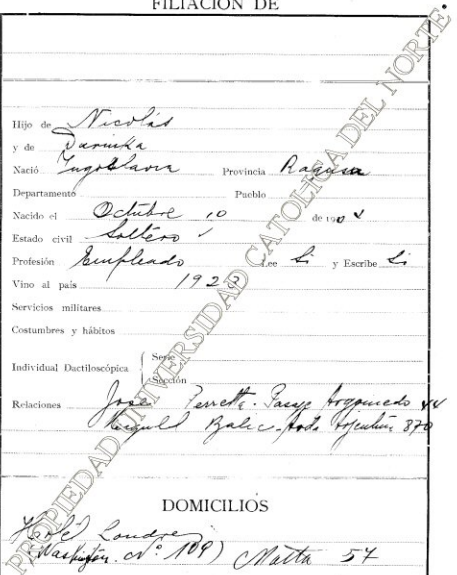 FILIACIÓN DE
Hijo de Nicolás
y de Darinka
Nació Yugoslavia Provincia Ragusa
Departamento Pueblo
Nacido el Octubre 10 de 190
Estado civil Soltero
Profesión Empleado Lee Si y Escribe Si
Vino al país 1923
Servicios militares
Costumbres y hábitos
Individual Dactiloscópica { Serie
Sección
Relaciones José Perretta. Pasaje Argomedo 44
Balic. Avda Argentina 870
DOMICILIOS
Hotel Londres
(Washington. Nº 109) Matta 57
PROPIEDAD UNIVERSIDAD CATOLICA DEL NORTE